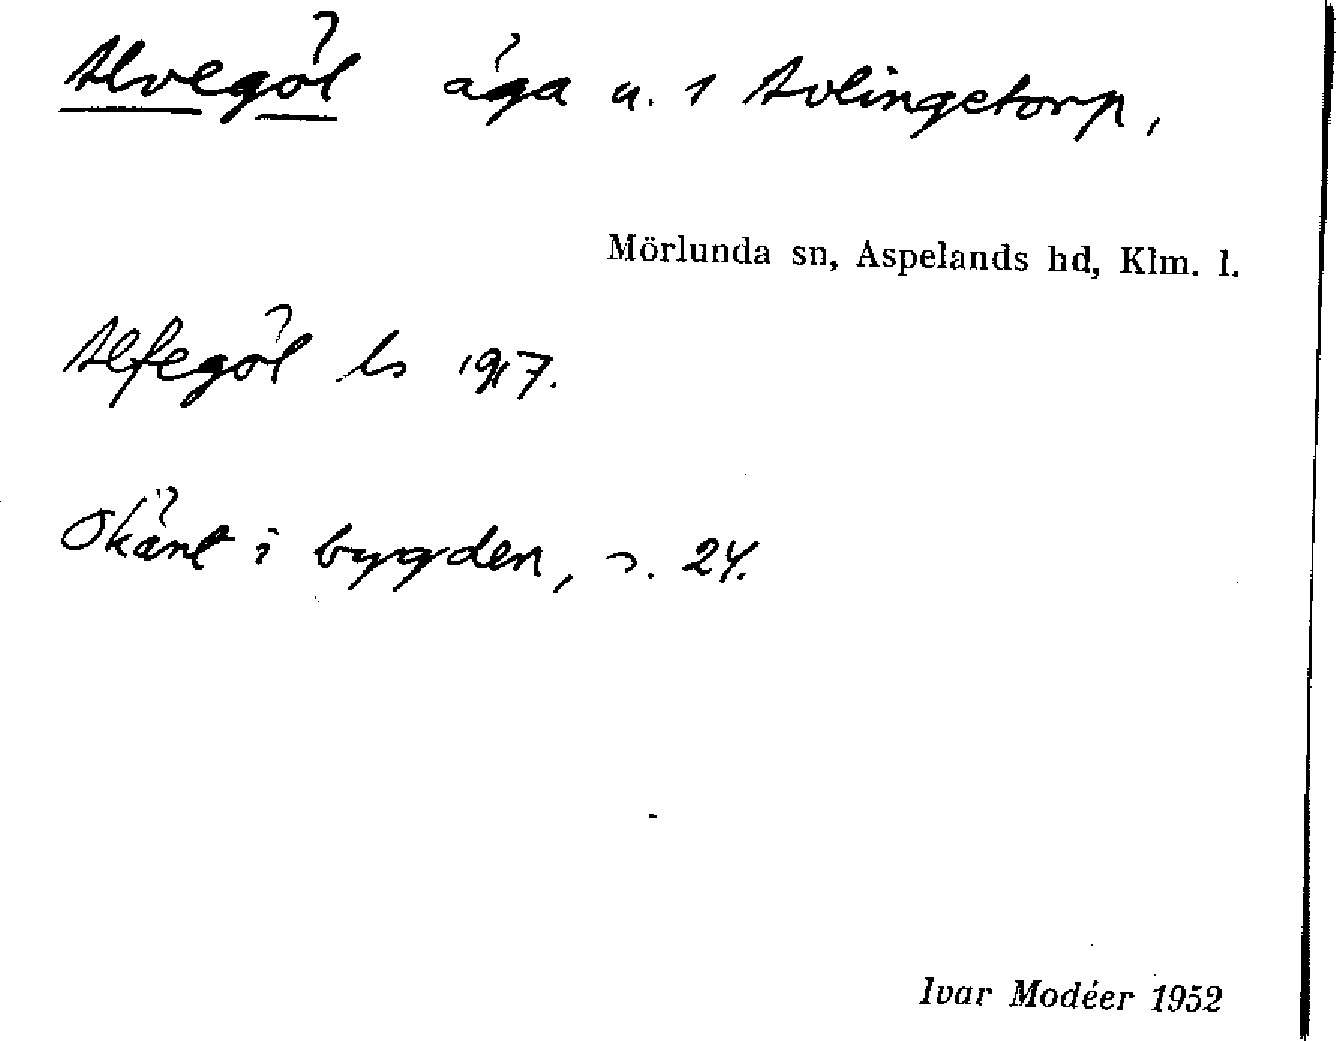 Alvegöl äga u. 1 Avlingetorp,
Mörlunda sn, Aspelands hd, Klm. l.
Alfegöl ls 1917.
Okänt i bygden, s. 24.
Ivar Modéer 1952